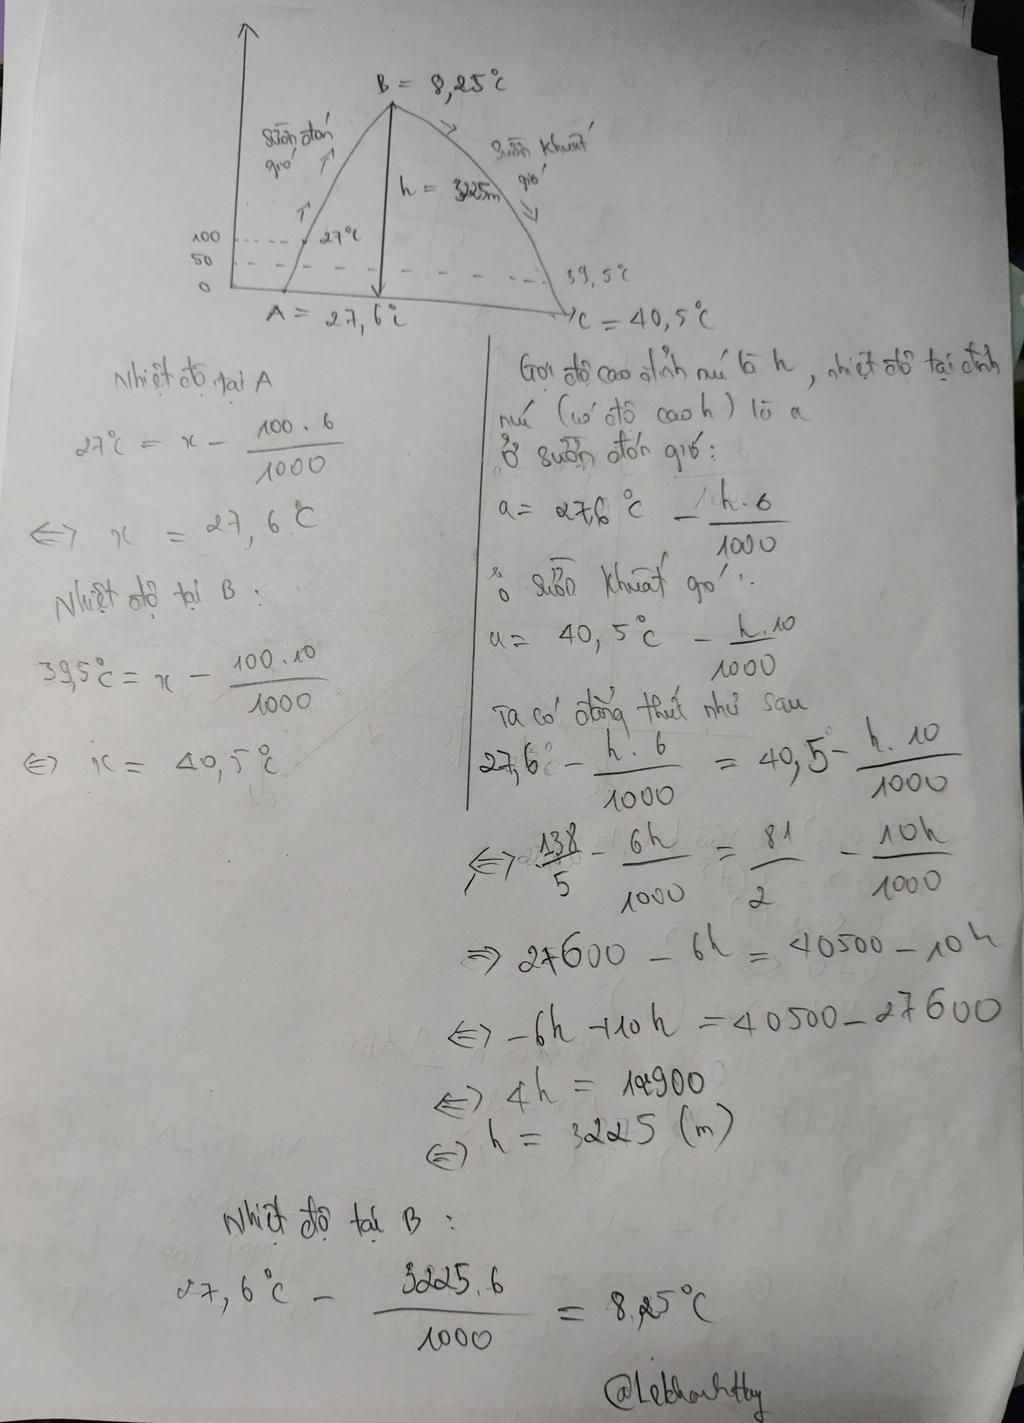 B = 8,25°C
Sườn đón
gió
Sườn khuất
gió
h = 3225m
100
27°C
50
39,5°C
0
A = 27,6°C
C = 40,5°C
Nhiệt độ tại A
27°C = x - 100.6 / 1000
<=> x = 27,6°C
Nhiệt độ tại B :
39,5°C = x - 100.10 / 1000
<=> x = 40,5°C
Gọi độ cao đỉnh núi là h, nhiệt độ tại đỉnh
núi (có độ cao h) là a
Ở sườn đón gió:
a = 27,6°C - h.6 / 1000
Ở sườn khuất gió :
a = 40,5°C - h.10 / 1000
Ta có đẳng thức như sau
27,6 - h.6 / 1000 = 40,5 - h.10 / 1000
<=> 138/5 - 6h/1000 = 81/2 - 10h/1000
=> 27600 - 6h = 40500 - 10h
<=> -6h + 10h = 40500 - 27600
<=> 4h = 12900
<=> h = 3225 (m)
Nhiệt độ tại B :
27,6°C - 3225.6 / 1000 = 8,25°C